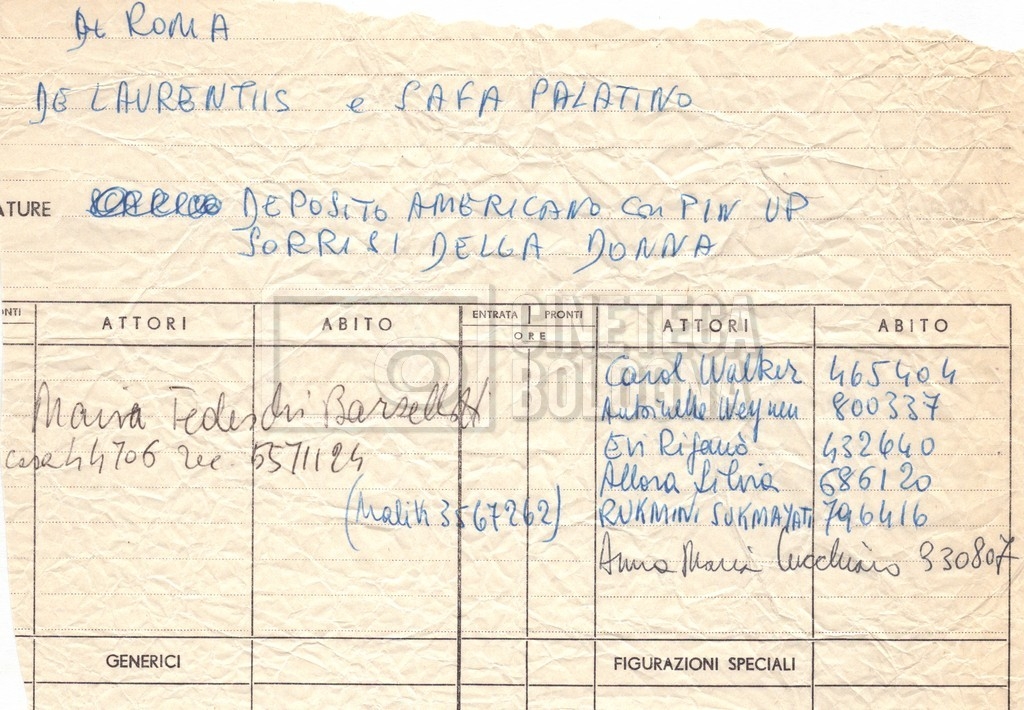 DI ROMA
DE LAURENTIIS e SAFA PALATINO
ATURE DEPOSITO AMERICANO con PIN UP
SORRISI DELLA DONNA
ONTI ATTORI ABITO ENTRATA PRONTI ORE ATTORI ABITO
CINETECA
BOLOGNA
Carol Walker 465404
Antoinette Weynen 800337
Maria Tedeschi Barsellotti
Evi Rifanò 432640
casa 44706 rec. 5571124
Allora Silvia 686120
(Malik 3567262) RUKMINI SUKMAYATI 796416
Anna Maria 330807
GENERICI FIGURAZIONI SPECIALI